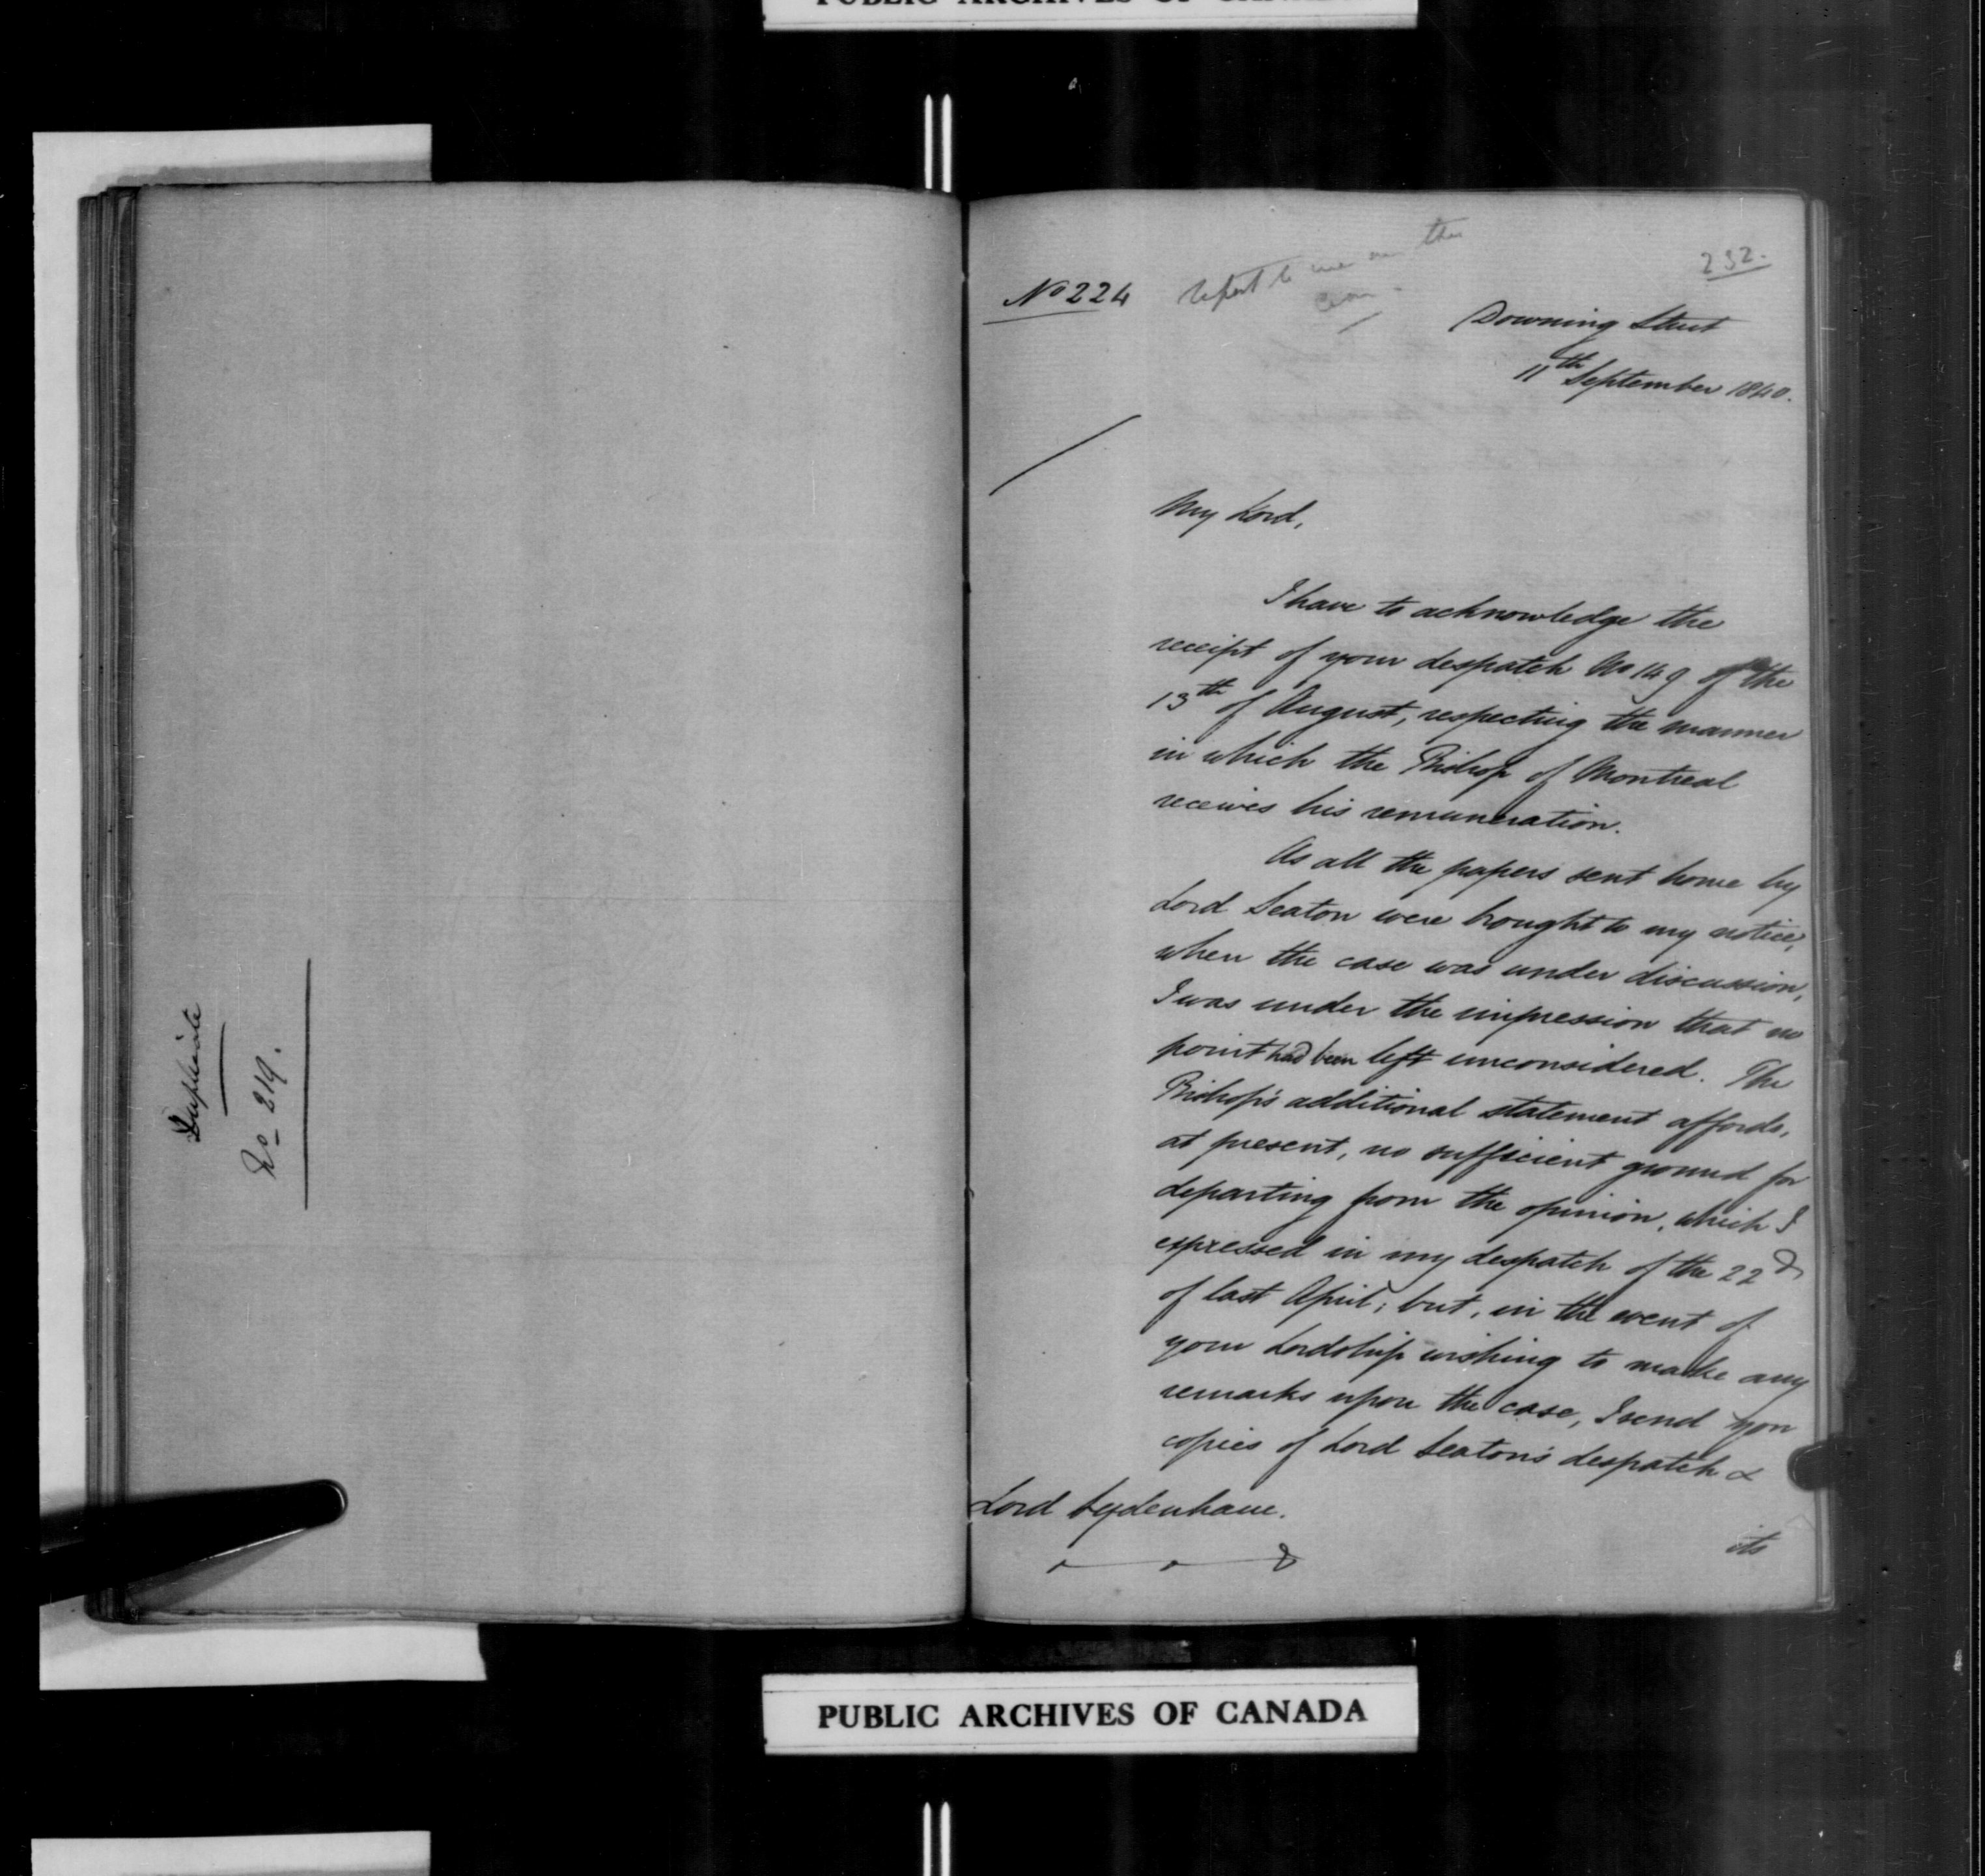 PUBLIC ARCHIVES OF CANADA
Duplicate
No 219.
232.
No 224
Report to me on the
Downing Street
11th September 1840.
My Lord,
I have to acknowledge the
receipt of your despatch No 149 of the
13th of August, respecting the manner
in which the Bishop of Montreal
receives his remuneration.
As all the papers sent home by
Lord Seaton were brought to my notice,
when the case was under discussion,
I was under the impression that no
point had been left unconsidered. The
Bishop's additional statement affords,
at present, no sufficient ground for
departing from the opinion, which I
expressed in my despatch of the 22d
of last April; but, in the event of
your Lordship wishing to make any
remarks upon the case, I send you
copies of Lord Seaton's despatch &
Lord Sydenham.
its
PUBLIC ARCHIVES OF CANADA